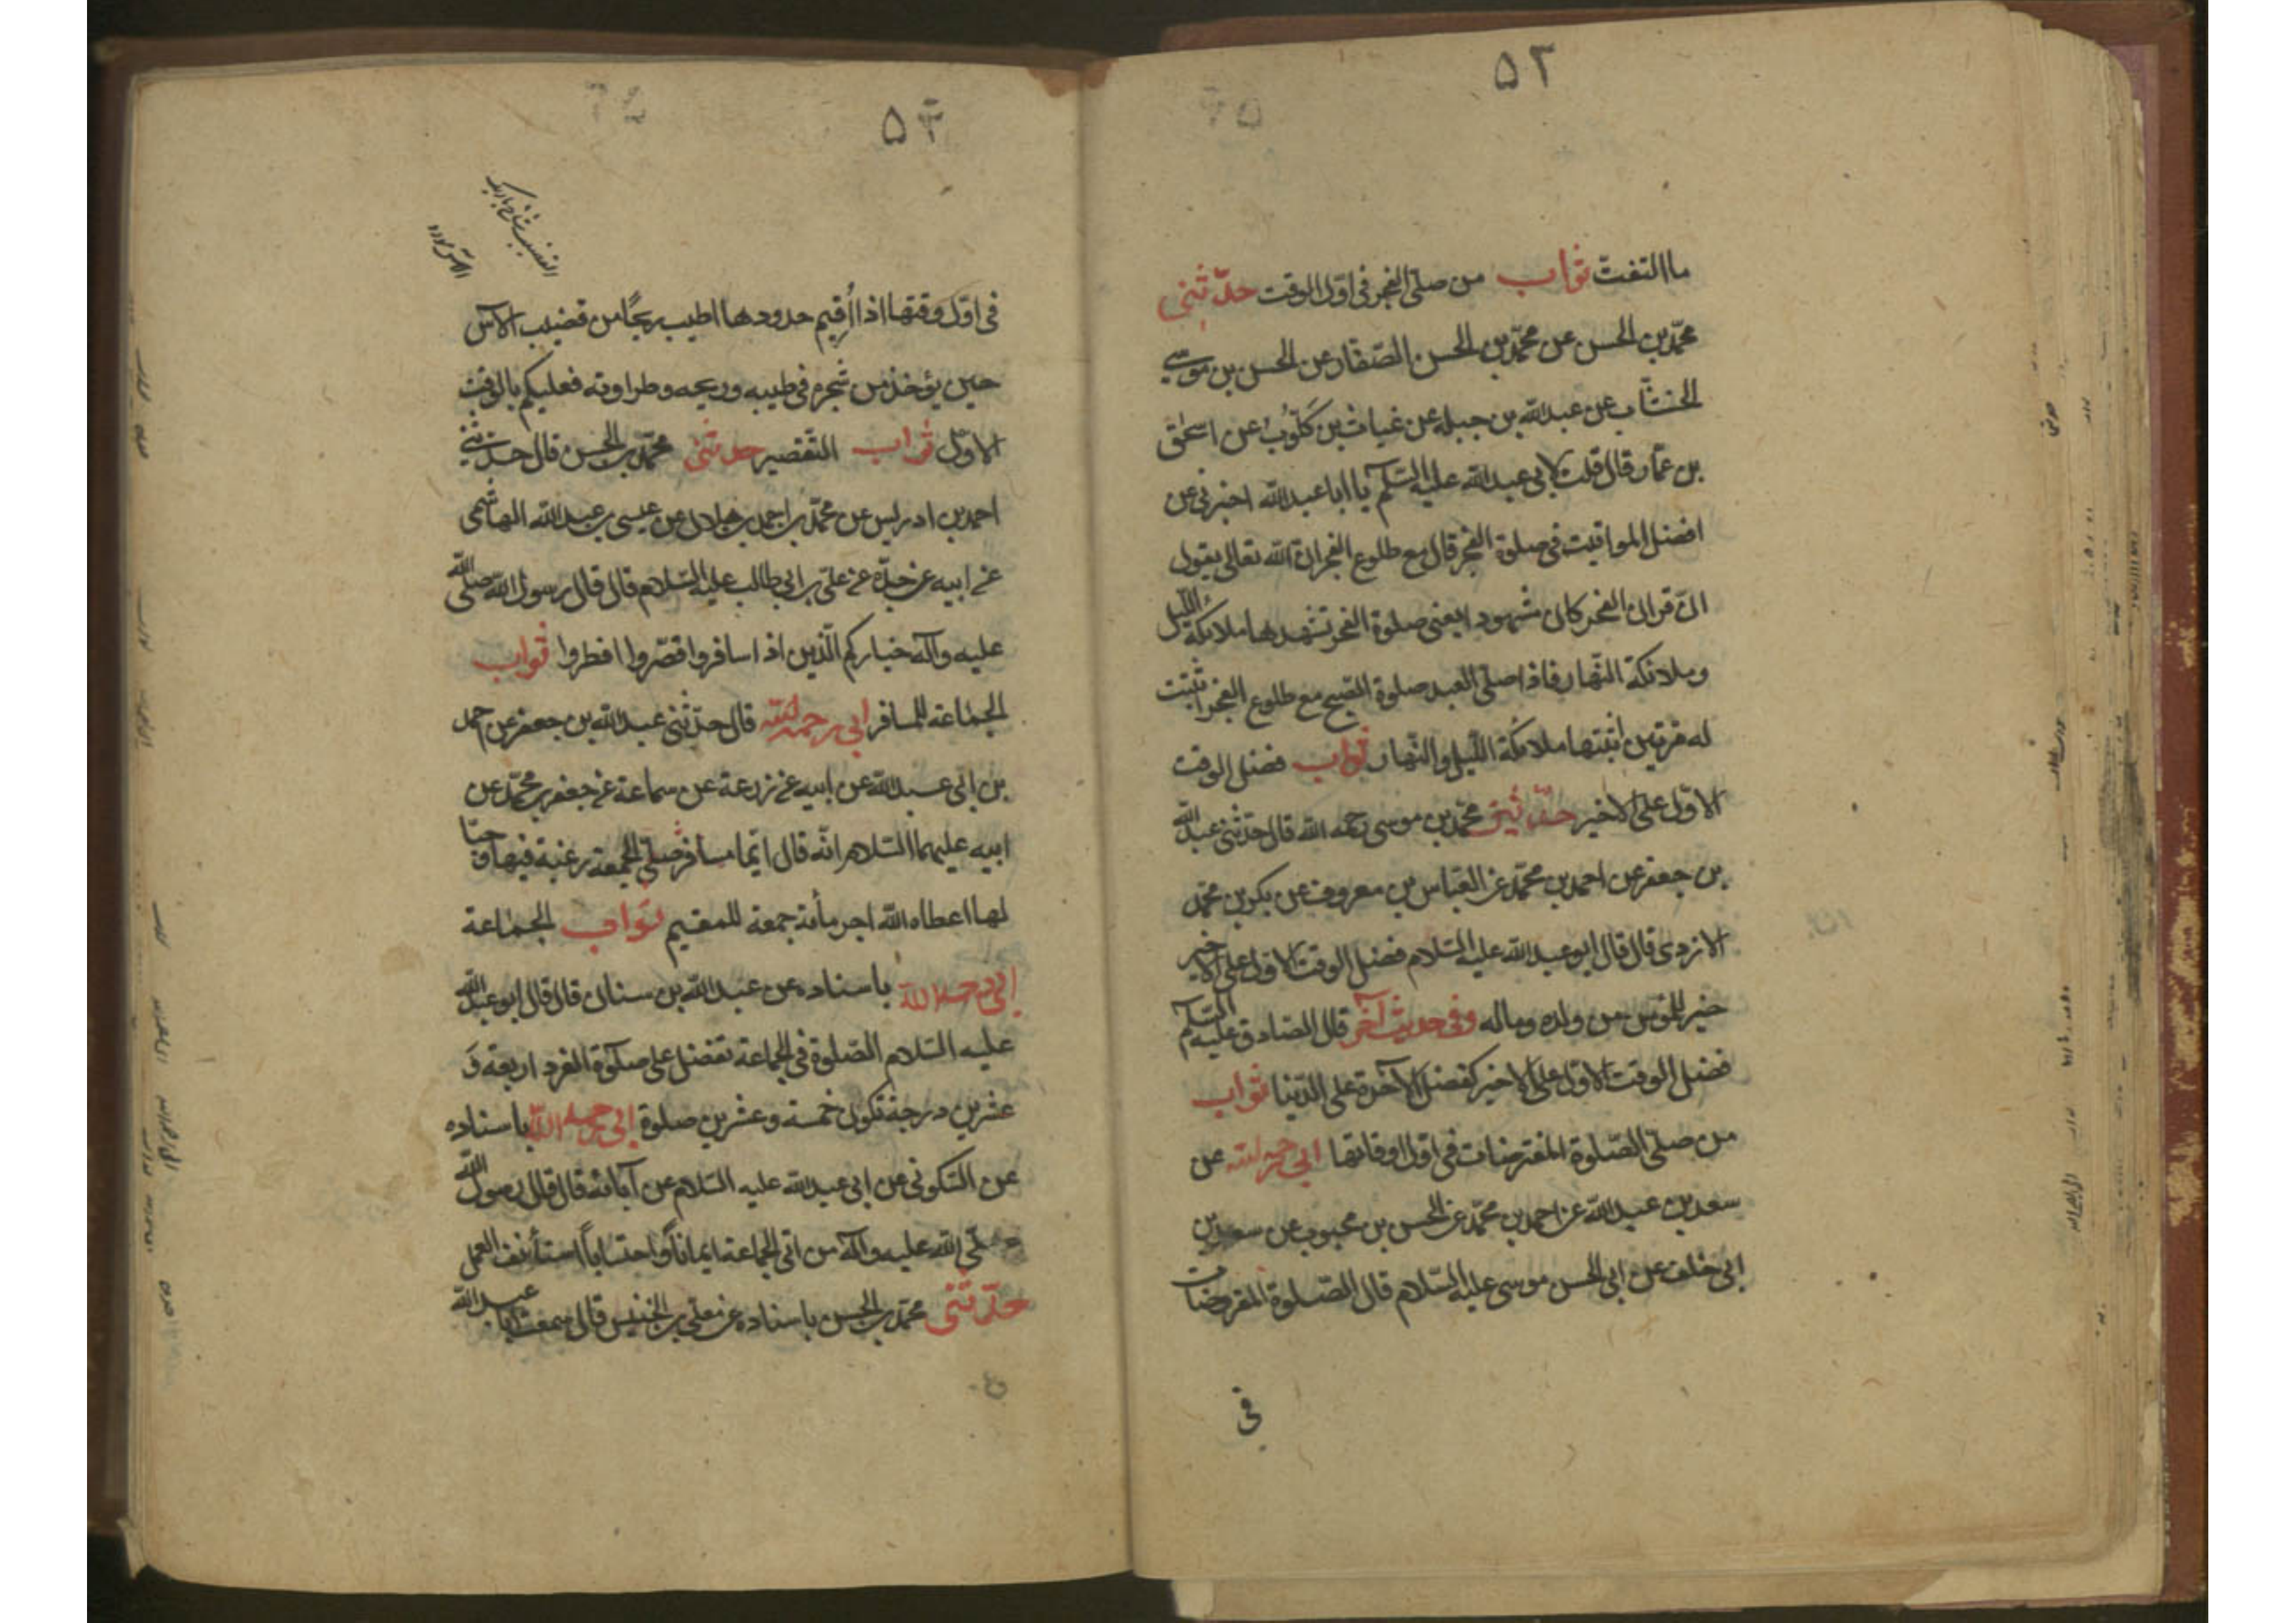 ۵۲
ما التفت ثواب من صلى الفجر في اول الوقت حدّثنى
محمّد بن الحسن عن محمّد بن الحسن الصّفار عن الحسن بن موسى
الخشّاب عن عبدالله بن جبله عن غياث بن كلّوب عن اسحق
بن عمّار قال قلت لابي عبدالله عليه السّلم يا ابا عبدالله اخبرني عن
افضل المواقيت في صلوة الفجر قال مع طلوع الفجر انّ الله تعالى يقول
انّ قرآن الفجر كان مشهودا يعنى صلوة الفجر تشهدها ملائكة اللّيل
وملائكة النّهار فاذا صلّى العبد صلوة الصّبح مع طلوع الفجر اثبتت
له مرّتين اثبتها ملائكة اللّيل والنّهار ثواب فضل الوقت
الاوّل على الاخير حدّثنى محمّد بن موسى رحمه الله قال حدّثنى عبدالله
بن جعفر عن احمد بن محمّد عن العبّاس بن معروف عن بكر بن محمّد
الازدي قال قال ابو عبدالله عليه السّلام فضل الوقت الاوّل على الاخير
خير للمؤمن من ولده وماله وفي حديث آخر قال الصّادق عليه السّلم
فضل الوقت الاوّل على الاخير كفضل الآخرة على الدّنيا ثواب
من صلّى الصّلوة المفترضات في اوّل اوقاتها ابي رحمه الله عن
سعد بن عبدالله عن احمد بن محمّد عن الحسن بن محبوب عن سعد بن
ابي خلف عن ابي الحسن موسى عليه السّلام قال الصّلوة المفروضات
في
۵۳
في اوّل وقتها اذا اُقيم حدودها اطيب ريحًا من قضيب الآس
حين يؤخذ من شجره في طيبه وريحه وطراوته فعليكم بالوقت
الاوّل ثواب التّقصير حدّثنى محمّد بن الحسن قال حدّثنى
احمد بن ادريس عن محمّد بن احمد بن هلال عن عيسى بن عبدالله الهاشمى
عن ابيه عن جدّه عن علىّ بن ابي طالب عليه السّلام قال قال رسول الله صلّى الله
عليه وآله خياركم الّذين اذا سافروا قصّروا افطروا ثواب
الجماعة للمسافر ابي رحمه الله قال حدّثنى عبدالله بن جعفر عن احمد
بن ابي عبدالله عن ابيه عن زرعة عن سماعة عن جعفر بن محمّد عن
ابيه عليهما السّلام انّه قال ايّما مسافر صلّى الجمعة رغبة فيها وحبّا
لها اعطاه الله اجر مأئة جمعة للمقيم ثواب الجماعة
ابي رحمه الله باسناده عن عبدالله بن سنان قال قال ابو عبدالله
عليه السّلام الصّلوة في الجماعة تفضل على صلوة الفرد اربعة وَ
عشرين درجة تكون خمسة وعشرين صلوة ابي رحمه الله باسناده
عن السّكوني عن ابي عبدالله عليه السّلام عن آبائه قال قال رسول الله
صلّى الله عليه وآله من اتى الجماعة ايمانًا واحتسابًا استأنف العمل
حدّثنى محمّد بن الحسن باسناده عن معلى بن الخنيس قال سمعت ابا عبدالله